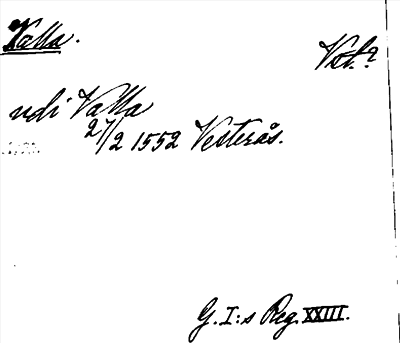 Valla.
Vstl?
udi Valla
27/2 1552 Vesterås.
G. I:s Reg. XXIII.